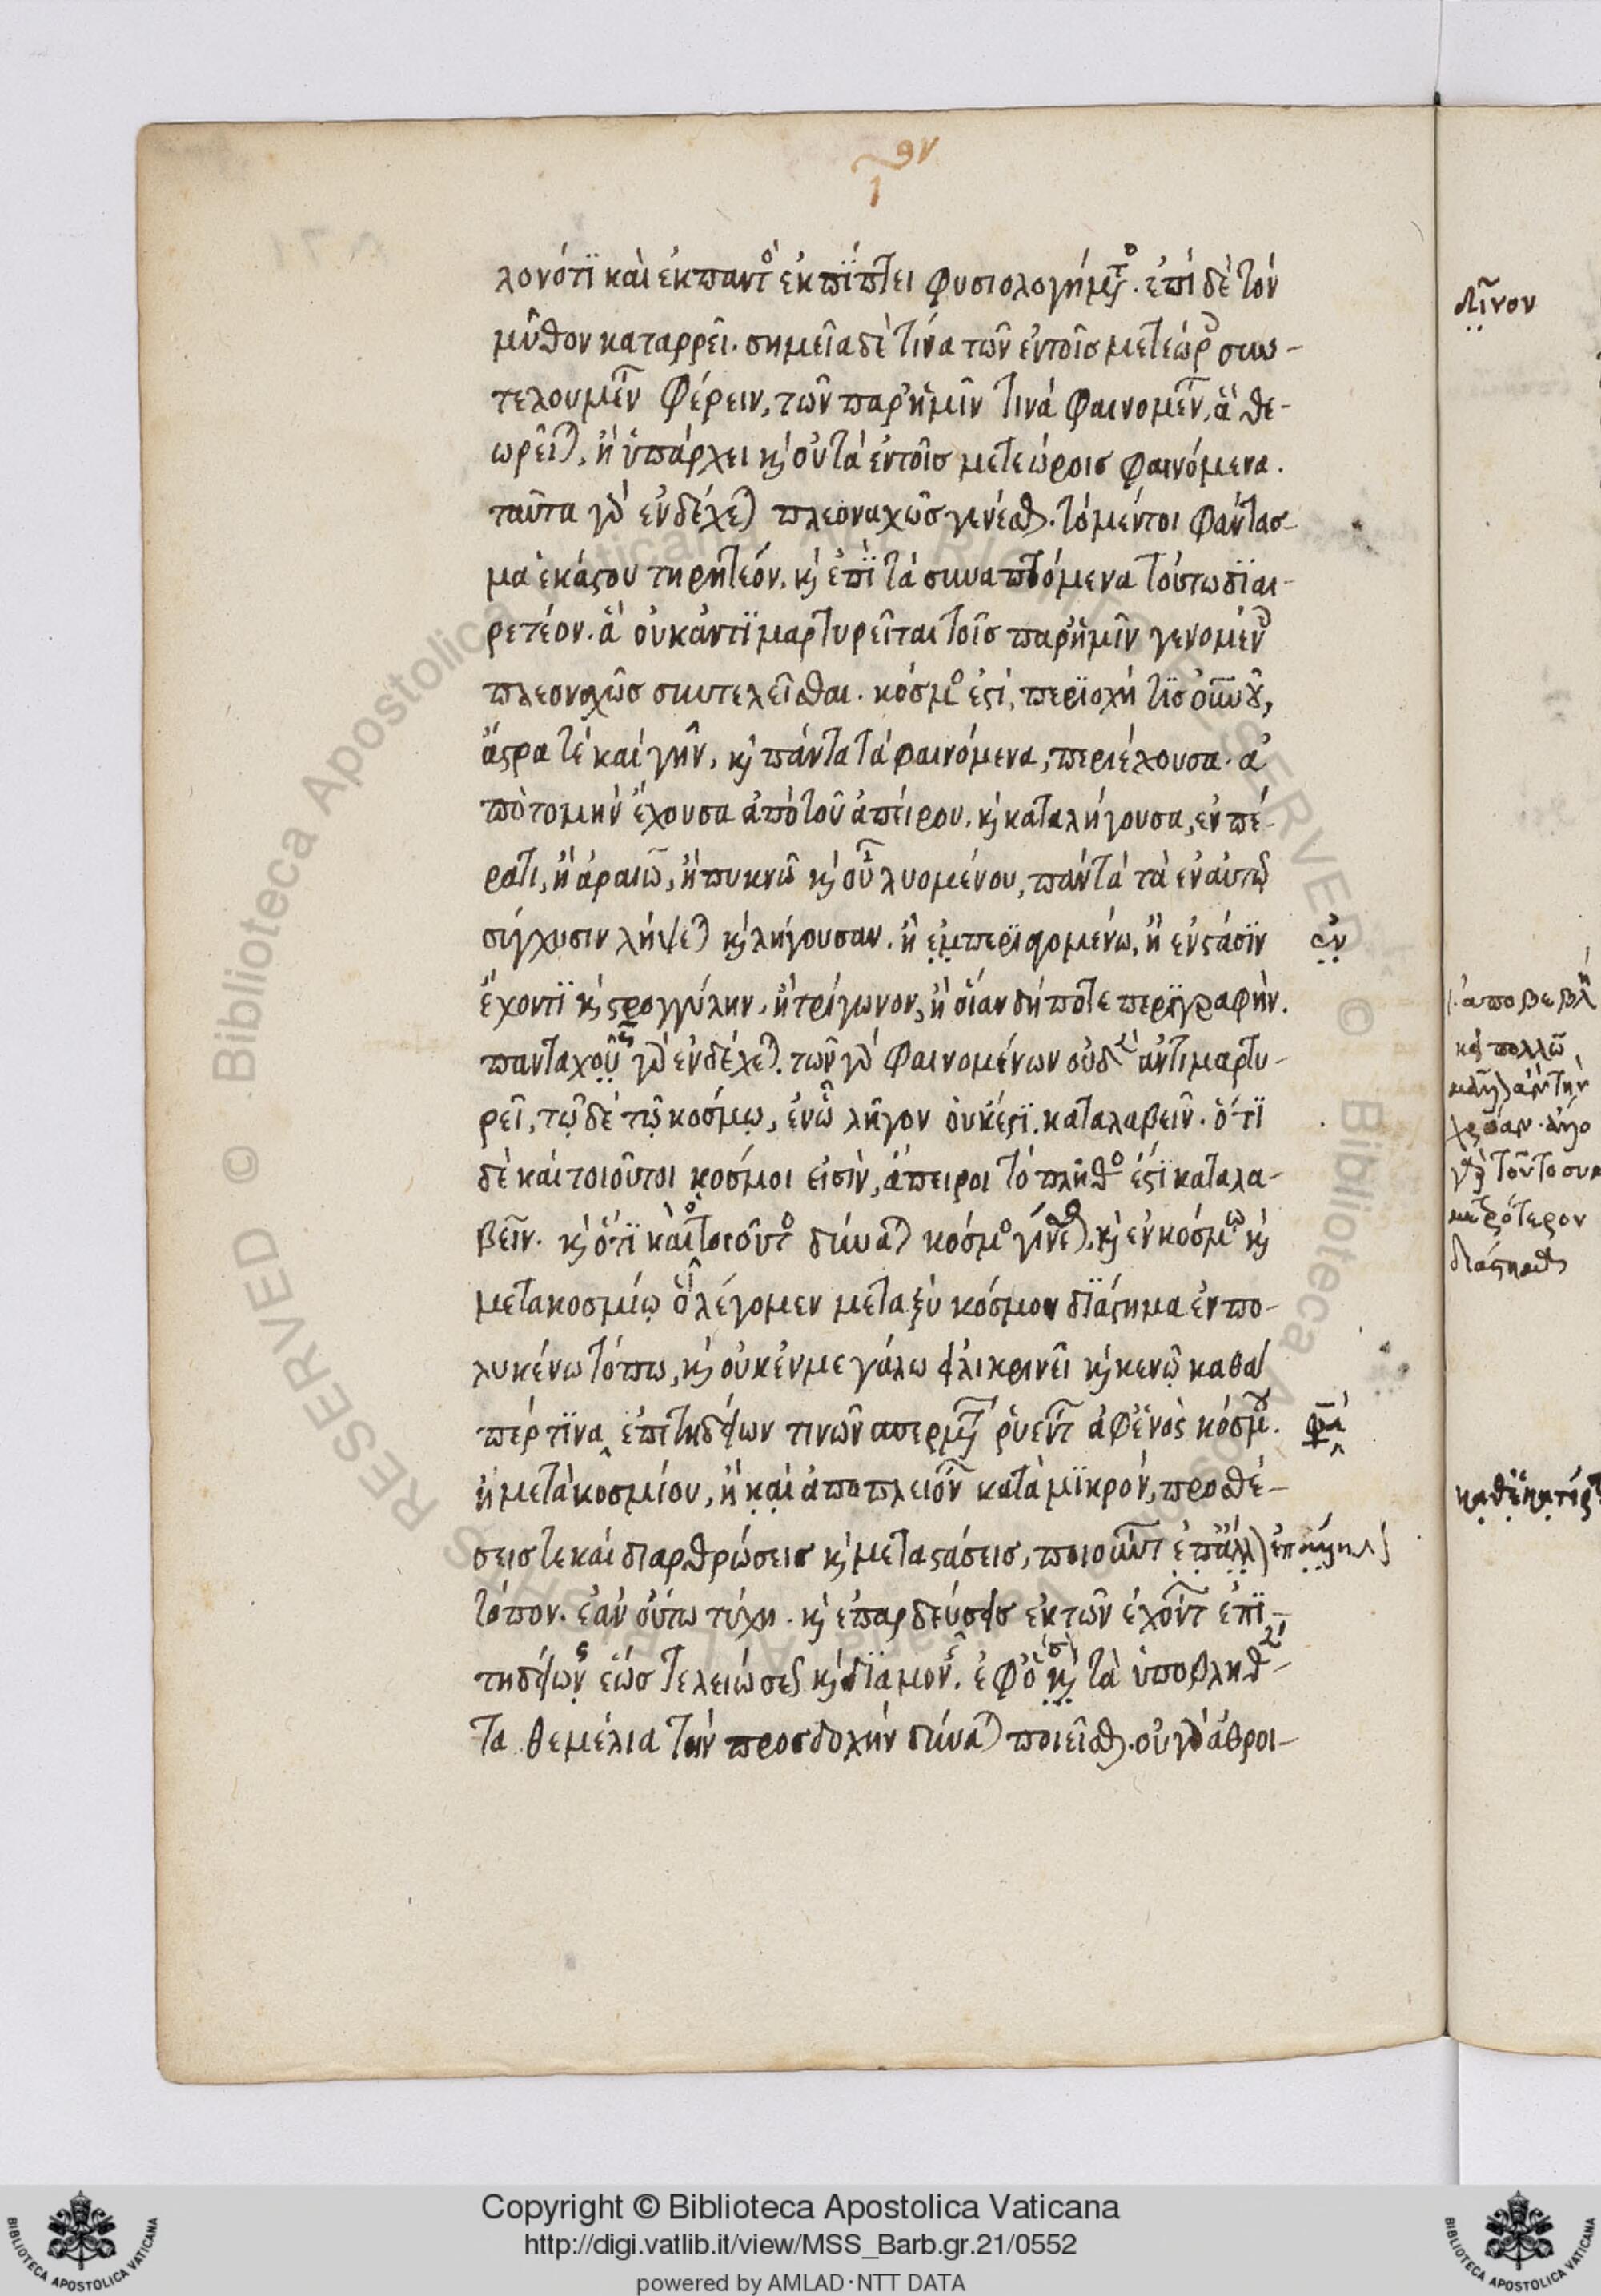 λονότϊ καὶ ἐκπαντὸς ἐκπίπτει φυσιολογήματος. ἐπὶ δὲ τὸν
μῦθον καταρρεῖ. σημεῖα δὲ τινα τῶν ἐντοῖς μετεώρων συν-
τελουμένων φέρειν, τῶν παρ' ἡμῖν τινὰ φαινομένων, ἃ θε-
ωρεῖται, ἢ ὑπάρχει καὶ οὐ τὰ ἐντοῖς μετεώροις φαινόμενα.
ταῦτα γὰρ ἐνδέχεται πλεοναχῶς γενέσθαι. τὸ μέντοι φάντασ-
μα ἑκάστου τηρητέον. καὶ ἐπὶ τὰ συναπτόμενα τούτω διαι-
ρετέον. ἃ οὐκ ἀντιμαρτυρεῖται τοῖς παρ' ἡμῖν γενομένων
πλεοναχῶς συντελεῖσθαι. κόσμος ἐστὶ, περιοχή τις οὐρανοῦ,
ἄστρα τὲ καὶ γῆν, καὶ πάντα τὰ φαινόμενα, περιέχουσα. ἀ
ποτομὴν ἔχουσα ἀπὸ τοῦ ἀπείρου. καὶ καταλήγουσα, ἐν πέ-
ρατι, ἢ ἀραιῶ, ἢ πυκνῶ καὶ οὗ λυομένου, πάντα τὰ ἐν αὐτῶ
σύγχυσιν λήψεται καὶ λήγουσαν. ἢ ἐμπεριαγομένω, ἢ ἐν στάσιν ἐν
ἔχοντι καὶ στρογγύλην, ἢ τρίγωνον, ἢ οἵαν δήποτε περιγραφήν.
πανταχοῦ γὰρ ἐνδέχεται. τῶν γὰρ φαινομένων οὐδὲν ἀντιμαρτυ-
ρεῖ, τῷ δὲ τῷ κόσμῳ, ἐν ὧ λῆγον οὐκ ἔστι. καταλαβεῖν. ὅτι
δὲ καὶ τοιοῦτοι κόσμοι εἰσὶν, ἄπειροι τὸ πλῆθος ἔστι καταλα-
βεῖν. καὶ ὅτι καὶ ὁ τοιοῦτος δύναται κόσμος γίνεσθαι, καὶ ἐν κόσμω καὶ
μετακοσμίῳ ὃ λέγομεν μεταξὺ κόσμον διάστημα ἐν πο-
λυκένω τόπω, καὶ οὐκ ἐν μεγάλω εἰλικρινεῖ καὶ κενῷ καθά
πέρ τινα ἐπιτηδείων τινῶν σπερμάτων ῥυέντων ἀφ' ἑνὸς κόσμου. φα
ἢ μετὰ κοσμίου, ἢ καὶ ἀπο πλειόνων κατὰ μικρὸν, προσθέ-
σεις τε καὶ διαρθρώσεις καὶ μεταστάσεις, ποιούντων ἐπ' ἄλλ
τόπον. ἐὰν οὕτω τύχη. καὶ ἐπαρδεύσεις ἐκ τῶν ἐχόντων ἐπι-
τηδείων ἕως τελειώσεως καὶ διαμονῆς. ἐφ' ὃ καὶ τὰ ὑποβληθέ-
τα θεμέλια τὴν προσδοχὴν δύναται ποιεῖσθαι. οὐ γὰρ ἀθροι-
δῖνον
ἀποβεβλη
Copyright © Biblioteca Apostolica Vaticana
http://digi.vatlib.it/view/MSS_Barb.gr.21/0552
powered by AMLAD·NTT DATA